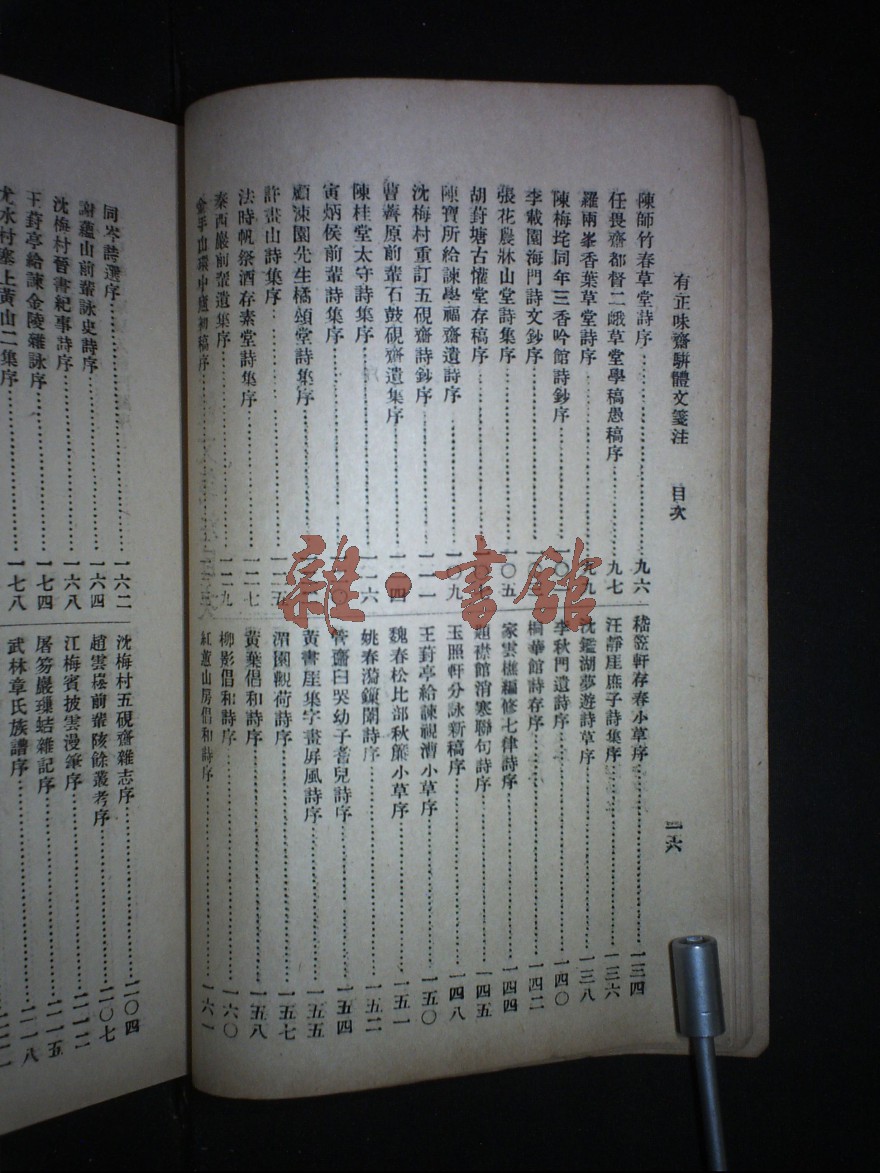 有正味齋駢體文箋注 目次 一六
陳師竹春草堂詩序 九六
任畏齋都督二峨草堂學稿愚稿序 九七
羅兩峯香葉草堂詩序 九九
陳梅垞同年三香吟館詩鈔序
李載園海門詩文鈔序
張花農牀山堂詩集序 一〇五
胡葑塘古懽堂存稿序
陳寶所給諫學福齋遺詩序 一〇九
沈梅村重訂五硯齋詩鈔序 一一一
曹薺原前輩石鼓硯齋遺集序
陳桂堂太守詩集序 一一六
寅炳侯前輩詩集序
顧涑園先生橘頌堂詩集序
許畫山詩集序 一二五
法時帆祭酒存素堂詩集序 一二七
秦西巖前輩遺集序 一二九
金手山環中廬初稿序
嵇笠軒存春小草序 一三四
汪靜崖庶子詩集序 一三六
沈鑑湖夢遊詩草序 一三八
李秋門遺詩序 一四〇
桐華館詩存序 一四二
家雲樵編修七律詩序 一四四
題襟館消寒聯句詩序 一四五
玉照軒分詠新稿序 一四八
王葑亭給諫視漕小草序 一五〇
魏春松比部秋簾小草序 一五一
姚春漪鎖闈詩序 一五二
管齋曰哭幼子耆兒詩序 一五四
黃書崖集字畫屏風詩序 一五五
湄園觀荷詩序 一五七
黃葉倡和詩序 一五八
柳影倡和詩序 一六〇
紅蕙山房倡和詩序 一六一
同岑詩選序 一六二
謝蘊山前輩詠史詩序 一六四
沈梅村晉書紀事詩序 一六八
王葑亭給諫金陵雜詠序 一七四
尤水村塞上黃山二集序 一七八
沈梅村五硯齋雜志序 二〇四
趙雲崧前輩陔餘叢考序 二〇七
江梅賓披雲漫筆序 二一二
屠笏巖璅蛣雜記序 二一五
武林章氏族譜序 二一八
雜·書館